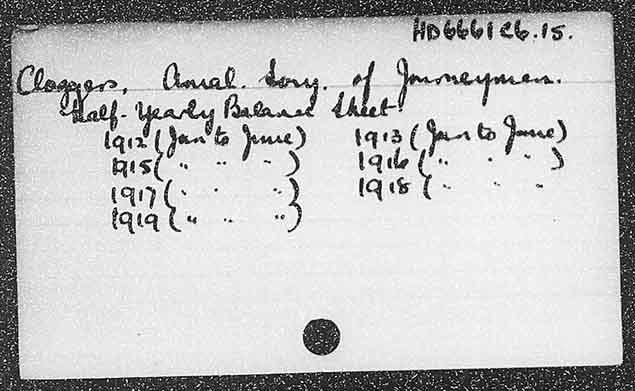 HD6661C6.15.
Cloggers, Amal. Socy. of Journeymen.
Half-Yearly Balance Sheet.
1912 (Jan to June) 1913 (Jan to June)
1915 ( " " " ) 1916 ( " " " )
1917 ( " " " ) 1918 ( " " "
1919 ( " " " )